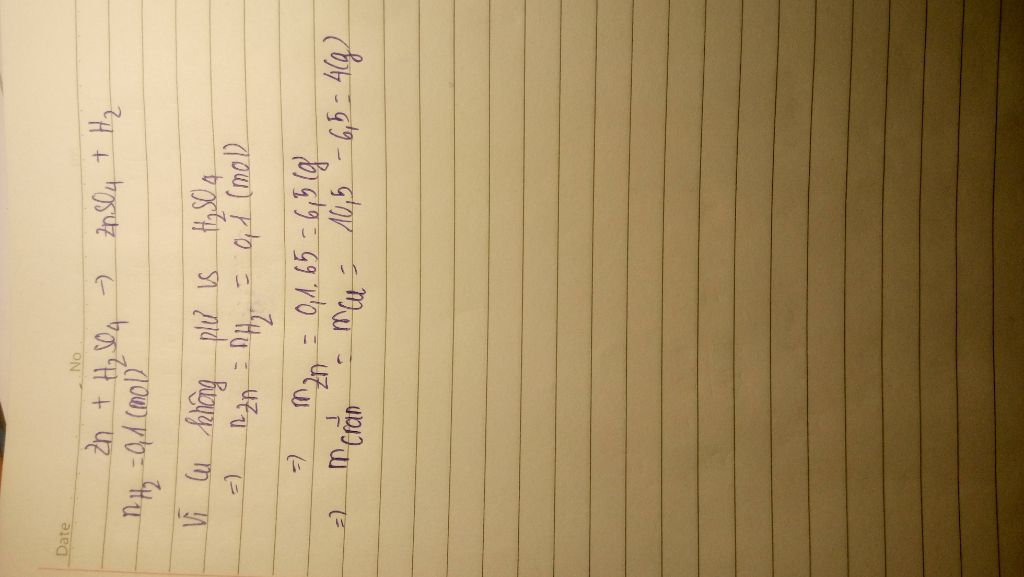 Date No
Zn + H₂SO₄ → ZnSO₄ + H₂
nH₂ = 0,1 (mol)
Vì Cu không pứ vs H₂SO₄
=) nZn = nH₂ = 0,1 (mol)
=) mZn = 0,1.65 = 6,5 (g)
=) mcrắn = mCu = 10,5 - 6,5 = 4(g)